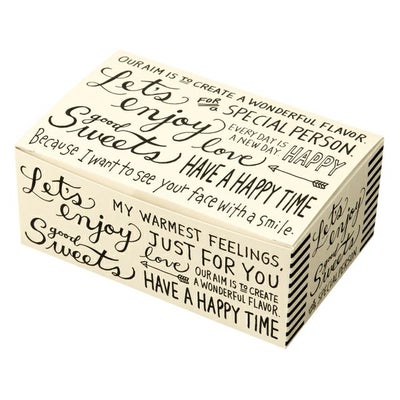 OUR AIM IS TO CREATE A WONDERFUL FLAVOR.
Let's enjoy good Sweets
FOR a SPECIAL PERSON.
EVERY DAY IS A NEW DAY HAPPY
love
HAVE A HAPPY TIME
Because I want to see your face with a smile.
Let's enjoy good Sweets
MY WARMEST FEELINGS,
JUST FOR YOU
love
OUR AIM IS TO CREATE
A WONDERFUL FLAVOR.
HAVE A HAPPY TIME
Let's
enjoy
good
Sweets